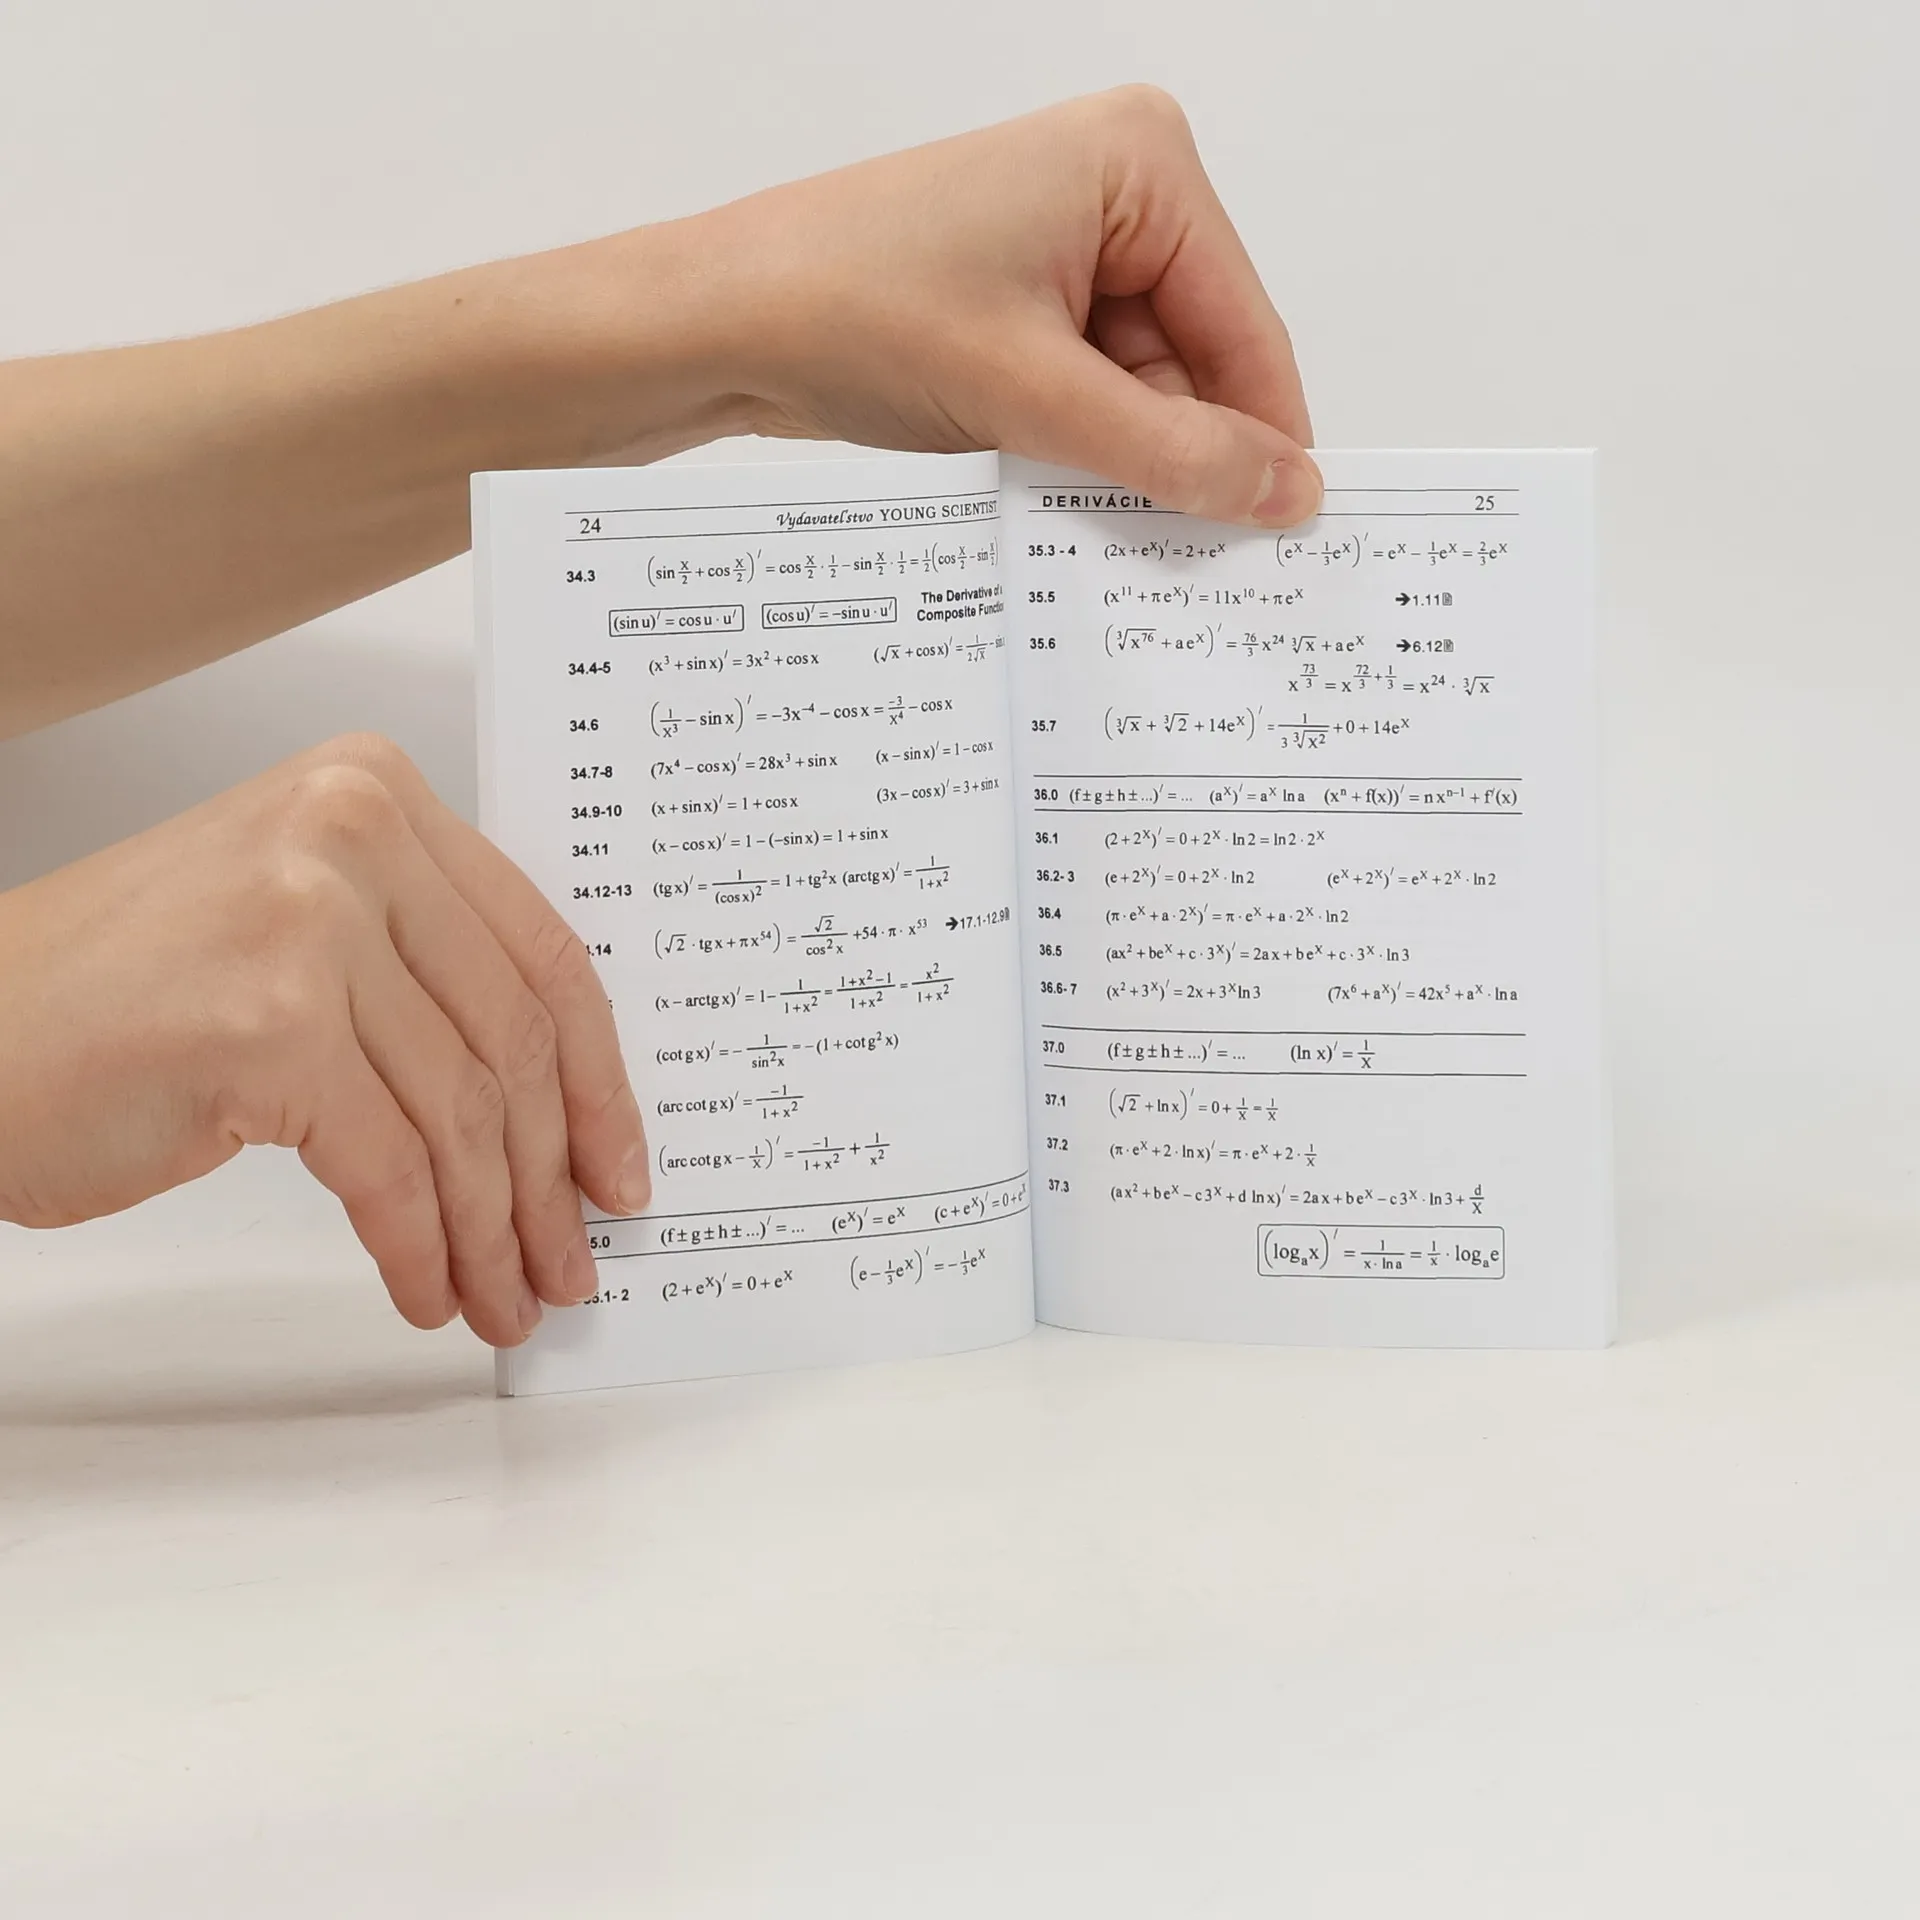 24 Vydavateľstvo YOUNG SCIENTIST
34.3 (sin x/2 + cos x/2)′ = cos x/2 · 1/2 − sin x/2 · 1/2 = 1/2(cos x/2 − sin x/2)
(sin u)′ = cos u · u′ (cos u)′ = −sin u · u′
The Derivative of
Composite
34.4-5 (x³ + sin x)′ = 3x² + cos x (√x + cos x)′ = 1/(2√x) −
34.6 (1/x³ − sin x)′ = −3x⁻⁴ − cos x = −3/x⁴ − cos x
34.7-8 (7x⁴ − cos x)′ = 28x³ + sin x (x − sin x)′ = 1 − cos x
34.9-10 (x + sin x)′ = 1 + cos x (3x − cos x)′ = 3 + sin x
34.11 (x − cos x)′ = 1 − (−sin x) = 1 + sin x
34.12-13 (tg x)′ = 1/(cos x)² = 1 + tg²x (arctg x)′ = 1/(1+x²)
.14 (√2 · tg x + πx⁵⁴) = √2/cos²x + 54 · π · x⁵³ ➔17.1-12.9
(x − arctg x)′ = 1 − 1/(1+x²) = (1+x²−1)/(1+x²) = x²/(1+x²)
(cotg x)′ = − 1/sin²x = −(1 + cotg²x)
(arc cotg x)′ = −1/(1+x²)
(arc cotg x − 1/x)′ = −1/(1+x²) + 1/x²
5.0 (f±g±h±...)′ = ... (eˣ)′ = eˣ (c + eˣ)′ = 0 + eˣ
5.1-2 (2 + eˣ)′ = 0 + eˣ (e − 1/3 eˣ)′ = − 1/3 eˣ
DERIVÁCIE 25
35.3 - 4 (2x + eˣ)′ = 2 + eˣ (eˣ − 1/3 eˣ)′ = eˣ − 1/3 eˣ = 2/3 eˣ
35.5 (x¹¹ + πeˣ)′ = 11x¹⁰ + πeˣ ➔1.11
35.6 (∛x⁷⁶ + aeˣ)′ = 76/3 x²⁴ ∛x + aeˣ ➔6.12
x^(73/3) = x^(72/3 + 1/3) = x²⁴ · ∛x
35.7 (∛x + ∛2 + 14eˣ)′ = 1/(3 ∛x²) + 0 + 14eˣ
36.0 (f±g±h±...)′ = ... (aˣ)′ = aˣ ln a (xⁿ + f(x))′ = n xⁿ⁻¹ + f′(x)
36.1 (2 + 2ˣ)′ = 0 + 2ˣ · ln 2 = ln 2 · 2ˣ
36.2- 3 (e + 2ˣ)′ = 0 + 2ˣ · ln 2 (eˣ + 2ˣ)′ = eˣ + 2ˣ · ln 2
36.4 (π · eˣ + a · 2ˣ)′ = π · eˣ + a · 2ˣ · ln 2
36.5 (ax² + beˣ + c · 3ˣ)′ = 2ax + beˣ + c · 3ˣ · ln 3
36.6- 7 (x² + 3ˣ)′ = 2x + 3ˣ ln 3 (7x⁶ + aˣ)′ = 42x⁵ + aˣ · ln a
37.0 (f±g±h±...)′ = ... (ln x)′ = 1/x
37.1 (√2 + ln x)′ = 0 + 1/x = 1/x
37.2 (π · eˣ + 2 · ln x)′ = π · eˣ + 2 · 1/x
37.3 (ax² + beˣ − c 3ˣ + d ln x)′ = 2ax + beˣ − c 3ˣ · ln 3 + d/x
(logₐx)′ = 1/(x · ln a) = 1/x · logₐe